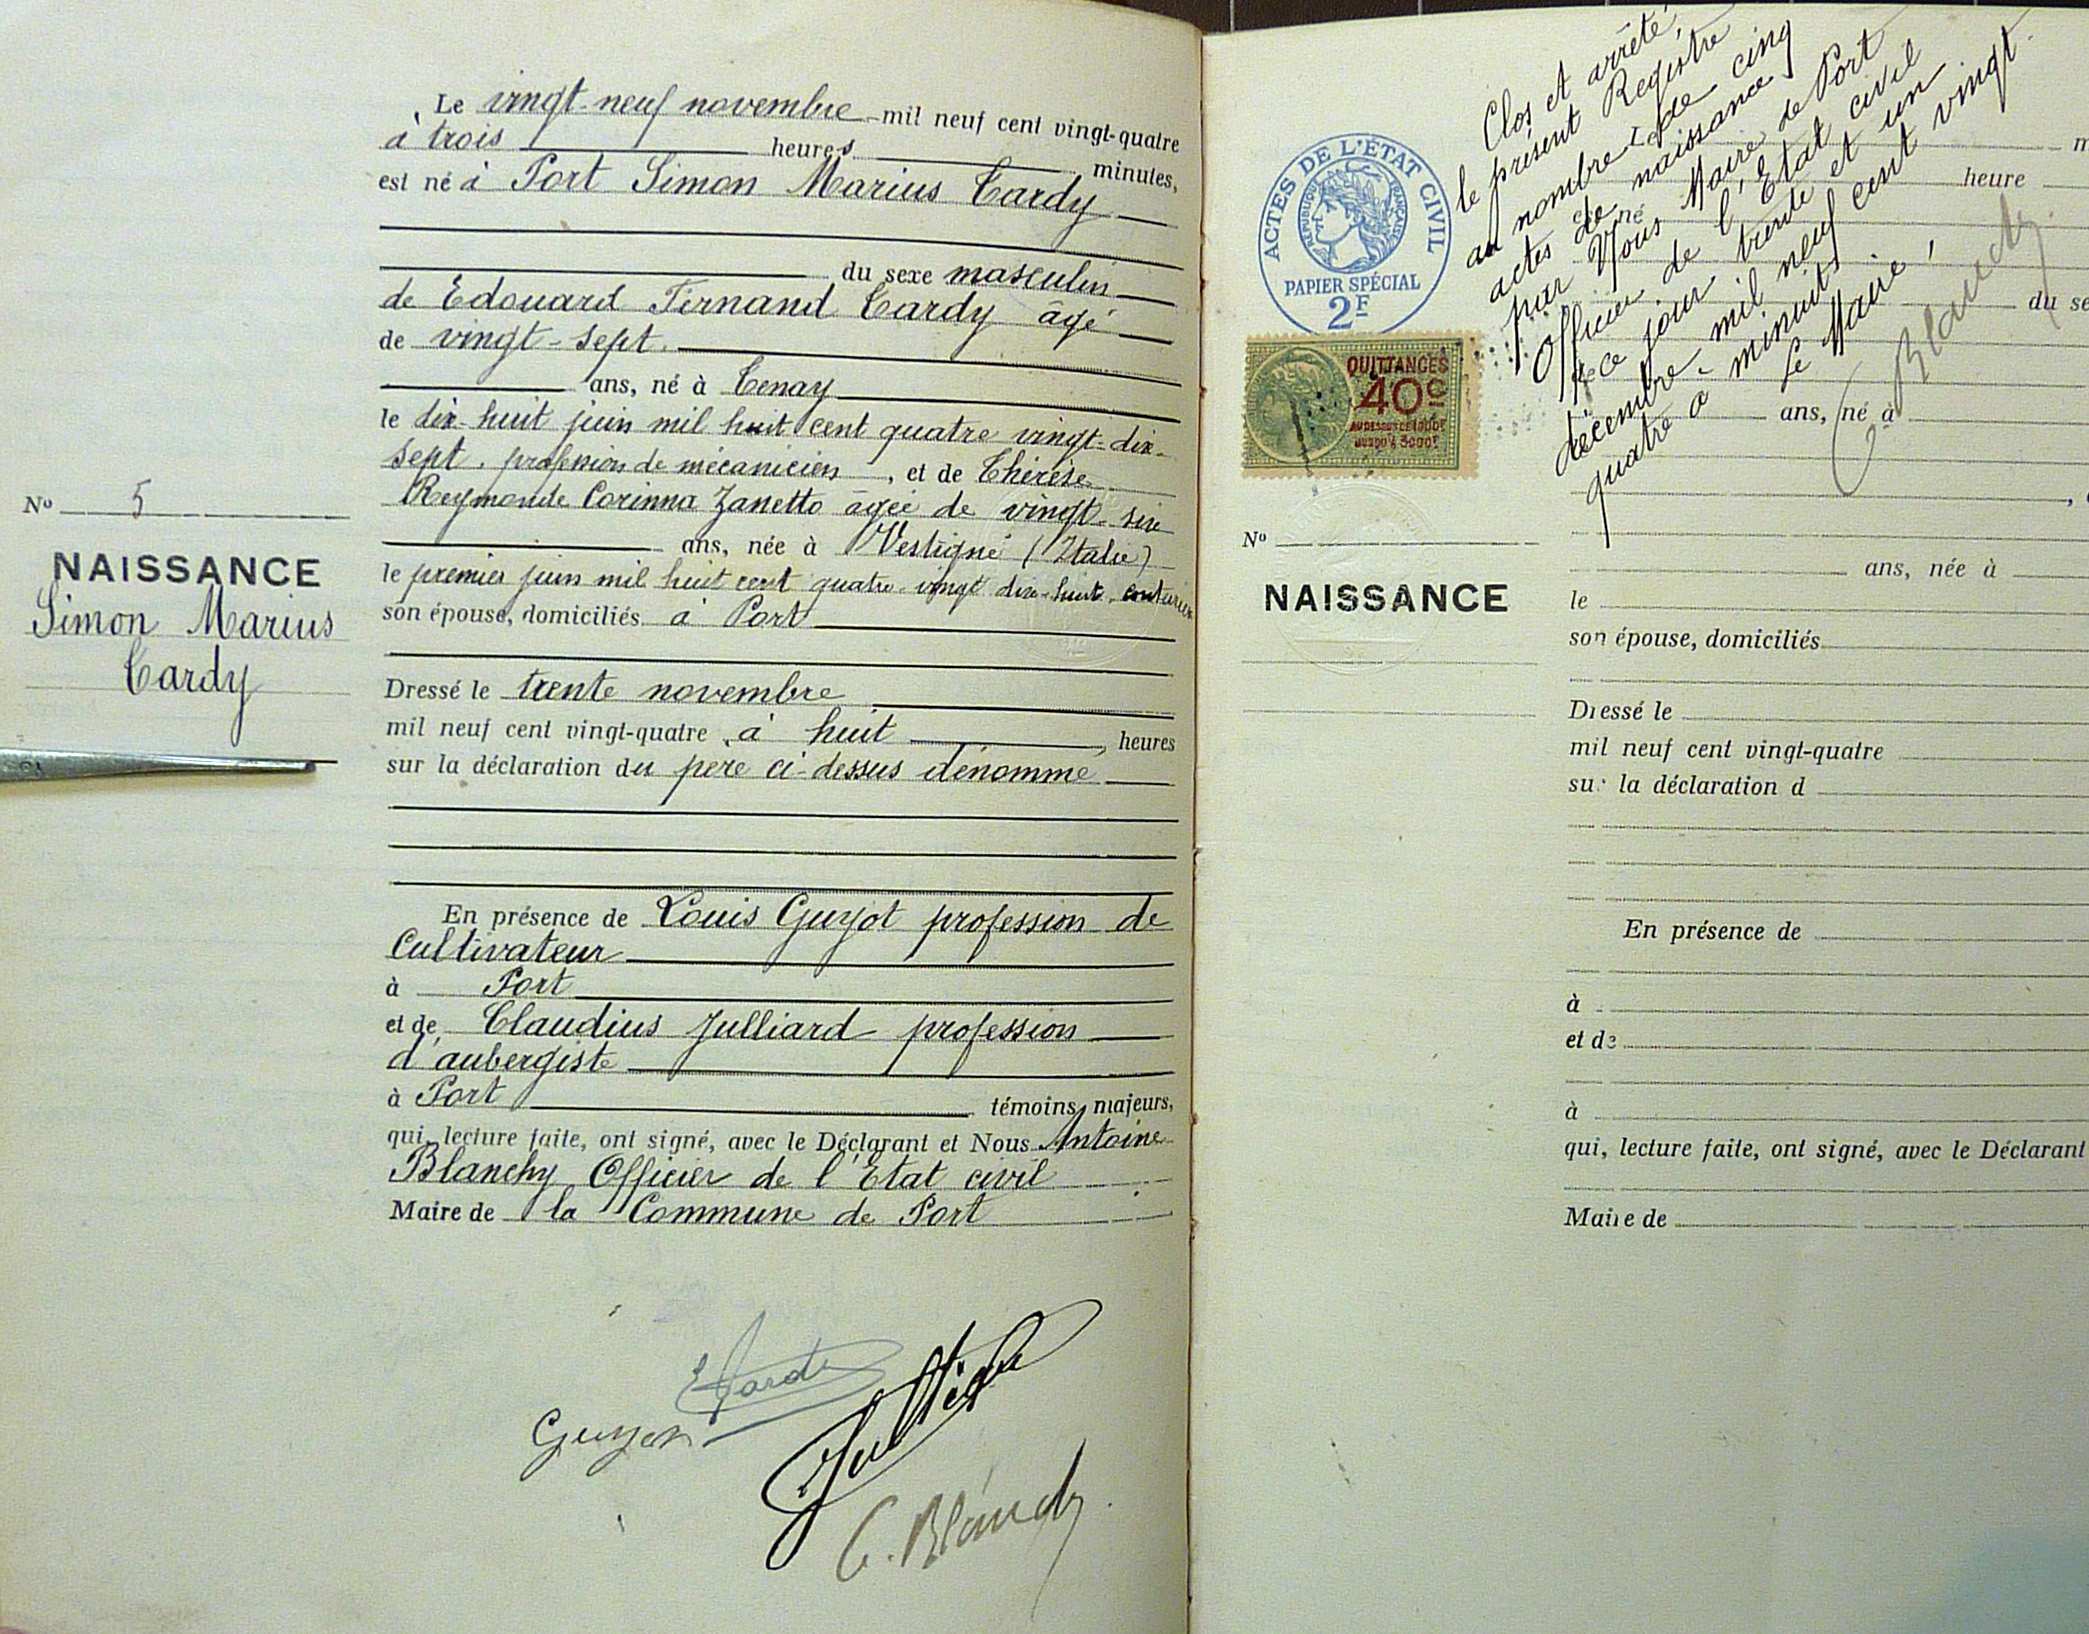 Le vingt-neuf novembre mil neuf cent vingt-quatre
à trois heures minutes,
est né à Port Simon Marius Cardy
du sexe masculin
de Edouard Fernand Cardy âgé
de vingt-sept
ans, né à Tenay
le dix-huit juin mil huit cent quatre vingt-dix-
sept, profession de mécanicien, et de Thérèse
Reymonde Corinna Zanetto âgée de vingt-six
ans, née à Vestigné (Italie)
le premier juin mil huit cent quatre-vingt dix-huit, couturière
son épouse, domiciliés à Port
Nº 5
NAISSANCE
Simon Marius
Cardy
Dressé le trente novembre
mil neuf cent vingt-quatre, à huit heures
sur la déclaration du père ci-dessus dénommé
En présence de Louis Guyot profession de
Cultivateur
à Port
et de Claudius Julliard profession
d'aubergiste
à Port témoins majeurs,
qui, lecture faite, ont signé, avec le Déclarant et Nous Antoine
Blanchy Officier de l'Etat civil
Maire de la Commune de Port
Guyot
C. Blanchy
Clos et arrêté,
le présent Registre
au nombre de cinq
actes de naissance
par Nous Maire de Port
Officier de l'Etat civil
ce jour trente et un
décembre mil neuf cent vingt
quatre à minuit
Le Maire,
C Blanchy
ACTES DE L'ÉTAT CIVIL
RÉPUBLIQUE FRANÇAISE
PAPIER SPÉCIAL
2F
QUITTANCES
40c
AU DESSUS DE 1000F
JUSQU'À 3000F
m
heure
est né
du se
ans, né à
Nº
NAISSANCE
ans, née à
le
son épouse, domiciliés
Dressé le
mil neuf cent vingt-quatre
sur la déclaration d
En présence de
à
et de
à
qui, lecture faite, ont signé, avec le Déclarant
Maire de